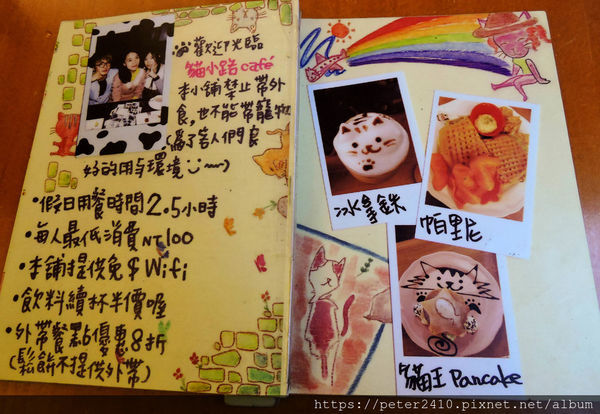 歡迎光臨
貓小路café
本舖禁止帶外
食,也不能帶寵物
(為了客人們良
好的用餐環境~)
·假日用餐時間2.5小時
·每人最低消費NT100
·本舖提供免$Wifi
·飲料續杯半價喔
·外帶餐點優惠8折
(鬆餅不提供外帶)
冰拿鐵
帕里尼
貓王Pancake
https://peter2410.pixnet.net/album